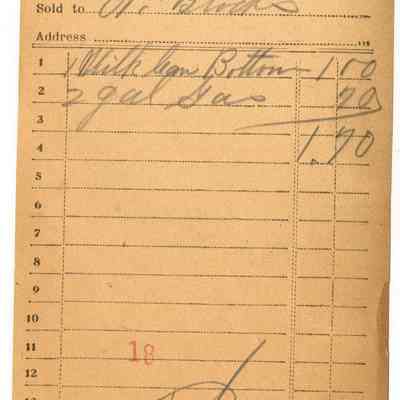 Sold to
Address
1 1 Milk Can Bottom 1 00
2 2 gal Gas 70
3
4 1.70
5
6
7
8
9
10
11 18
12